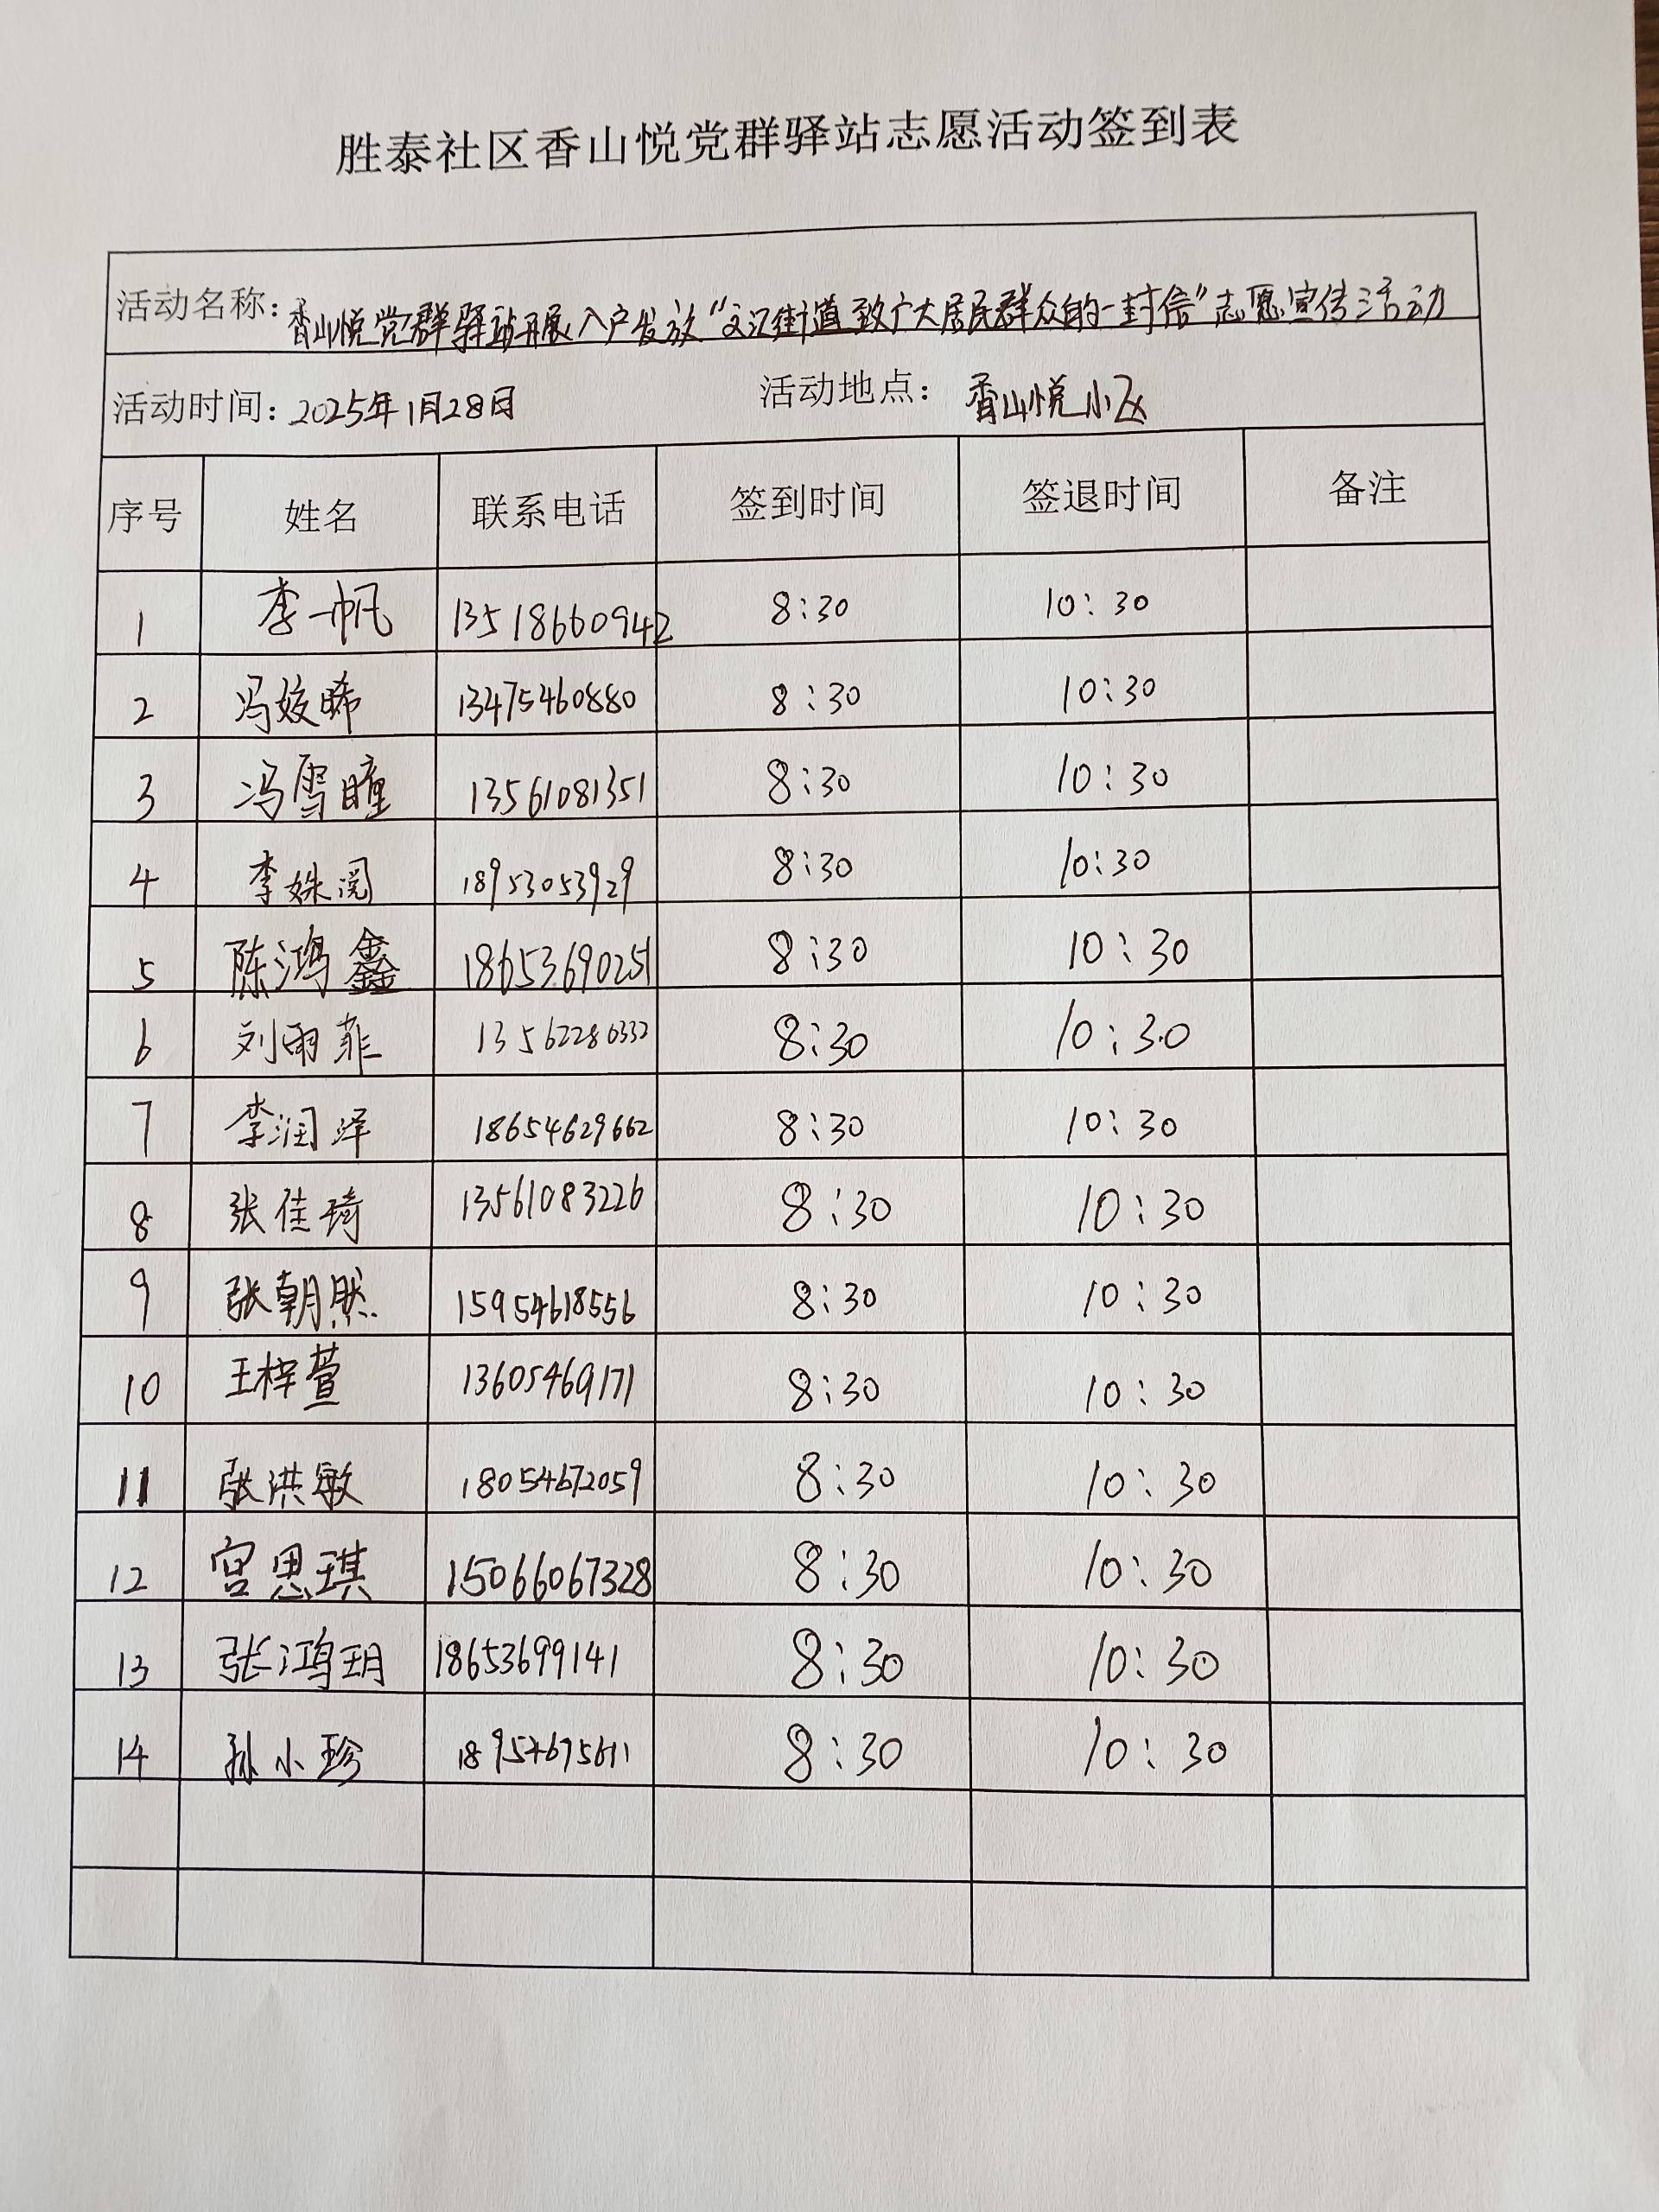 胜泰社区香山悦党群驿站志愿活动签到表
活动名称：香山悦党群驿站开展入户发放“文汇街道致广大居民群众的一封信”志愿宣传活动
活动时间：2025年1月28日 活动地点：香山悦小区
序号 姓名 联系电话 签到时间 签退时间 备注
1 李一帆 13518660942 8:30 10:30
2 冯姣晞 13475460880 8:30 10:30
3 冯雪瞳 13561081351 8:30 10:30
4 李姝阅 18953053929 8:30 10:30
5 陈鸿鑫 18653690251 8:30 10:30
6 刘雨菲 13562280332 8:30 10:30
7 李润泽 18654629662 8:30 10:30
8 张佳琦 13561083226 8:30 10:30
9 张朝然 15954618556 8:30 10:30
10 王梓萱 13605469171 8:30 10:30
11 张洪敏 18054672059 8:30 10:30
12 宫思琪 15066067328 8:30 10:30
13 张鸿玥 18653699141 8:30 10:30
14 孙小珍 8:30 10:30